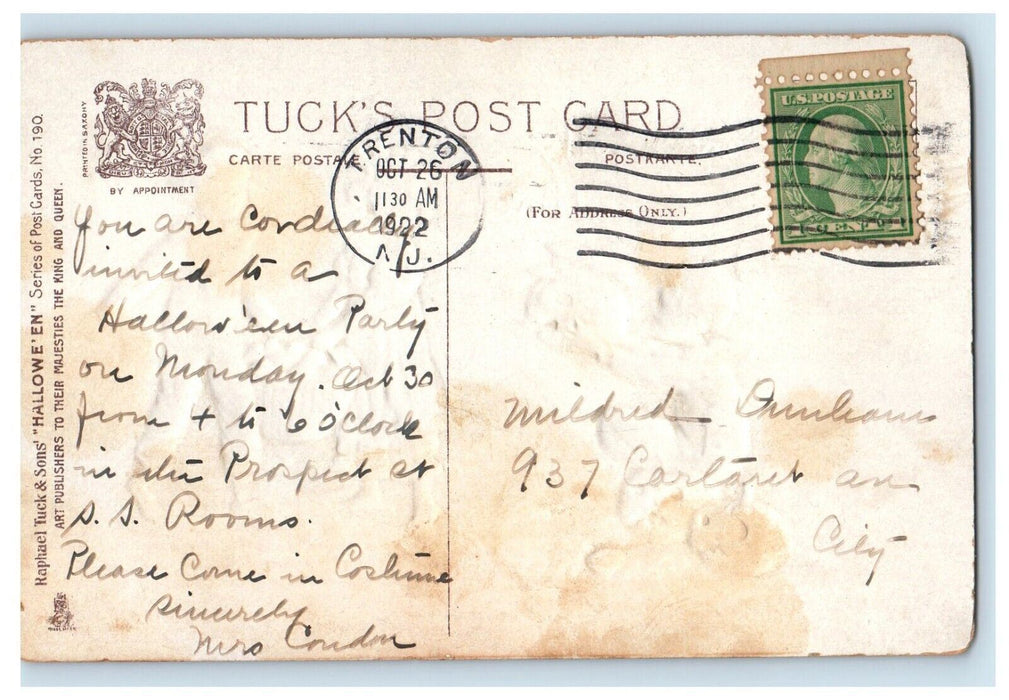 TUCK'S POST CARD
CARTE POSTALE.
POSTKARTE.
(FOR ADDRESS ONLY.)
PRINTED IN SAXONY
BY APPOINTMENT
Raphael Tuck & Sons' "HALLOWE'EN" Series of Post Cards, No. 190.
ART PUBLISHERS TO THEIR MAJESTIES THE KING AND QUEEN.
TRENTON
OCT 26
1130 AM
1922
N.J.
U.S. POSTAGE
You are Cordially
invited to a
Hallow'een Party
on Monday. Oct 30
from 4 to 6 o'clock
in the Prospect St
S. S. Rooms.
Please Come in Costume
Sincerely
Mrs Condon
Mildred Dunham
937 Carteret av
City